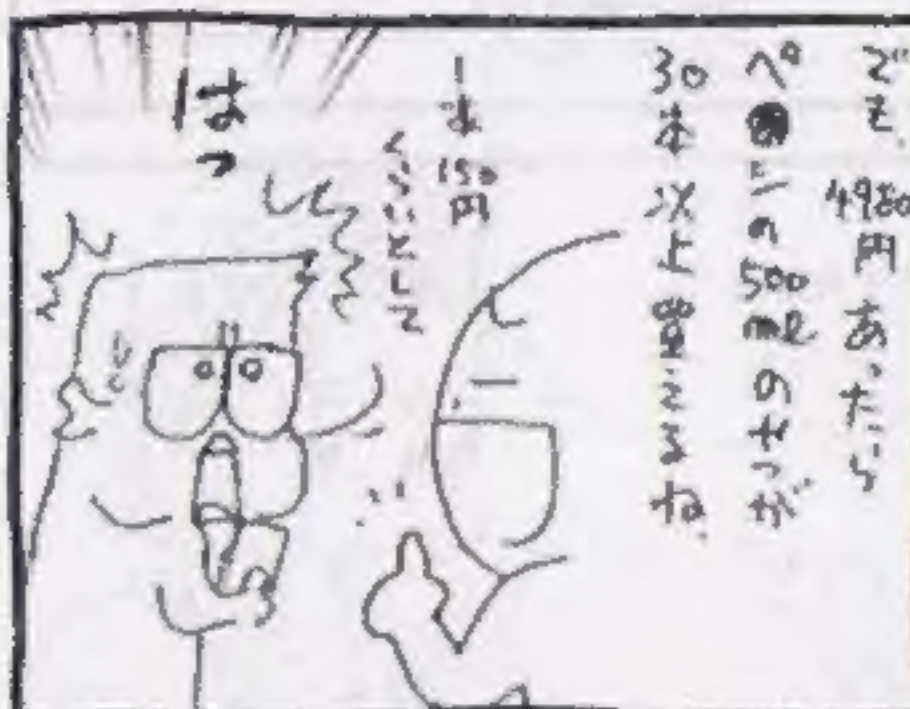 でも、4980円あったら
ペ●シの500mlのやつが
30本以上買えるね。
1本150円
くらいとして
はっ